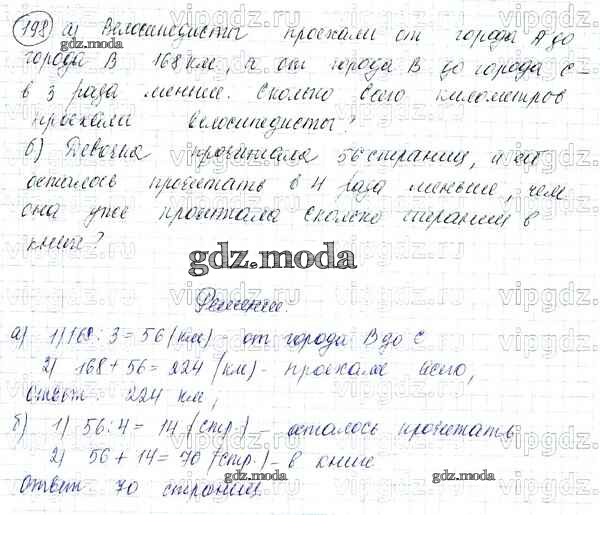 198 а) Велосипедисты проехали от города А до
города В 168 км, а от города В до города С -
в 3 раза меньше. Сколько всего километров
проехали велосипедисты?
б) Девочка прочитала 56 страниц, и ей
осталось прочитать в 4 раза меньше, чем
она уже прочитала. Сколько страниц в
книге?
gdz.moda
Решение.
а) 1) 168 : 3 = 56 (км) - от города В до С
2) 168 + 56 = 224 (км) - проехали всего,
Ответ: 224 км,
б) 1) 56 : 4 = 14 (стр.) - осталось прочитать
2) 56 + 14 = 70 (стр.) - в книге
gdz.moda gdz.moda
Ответ 70 страниц.